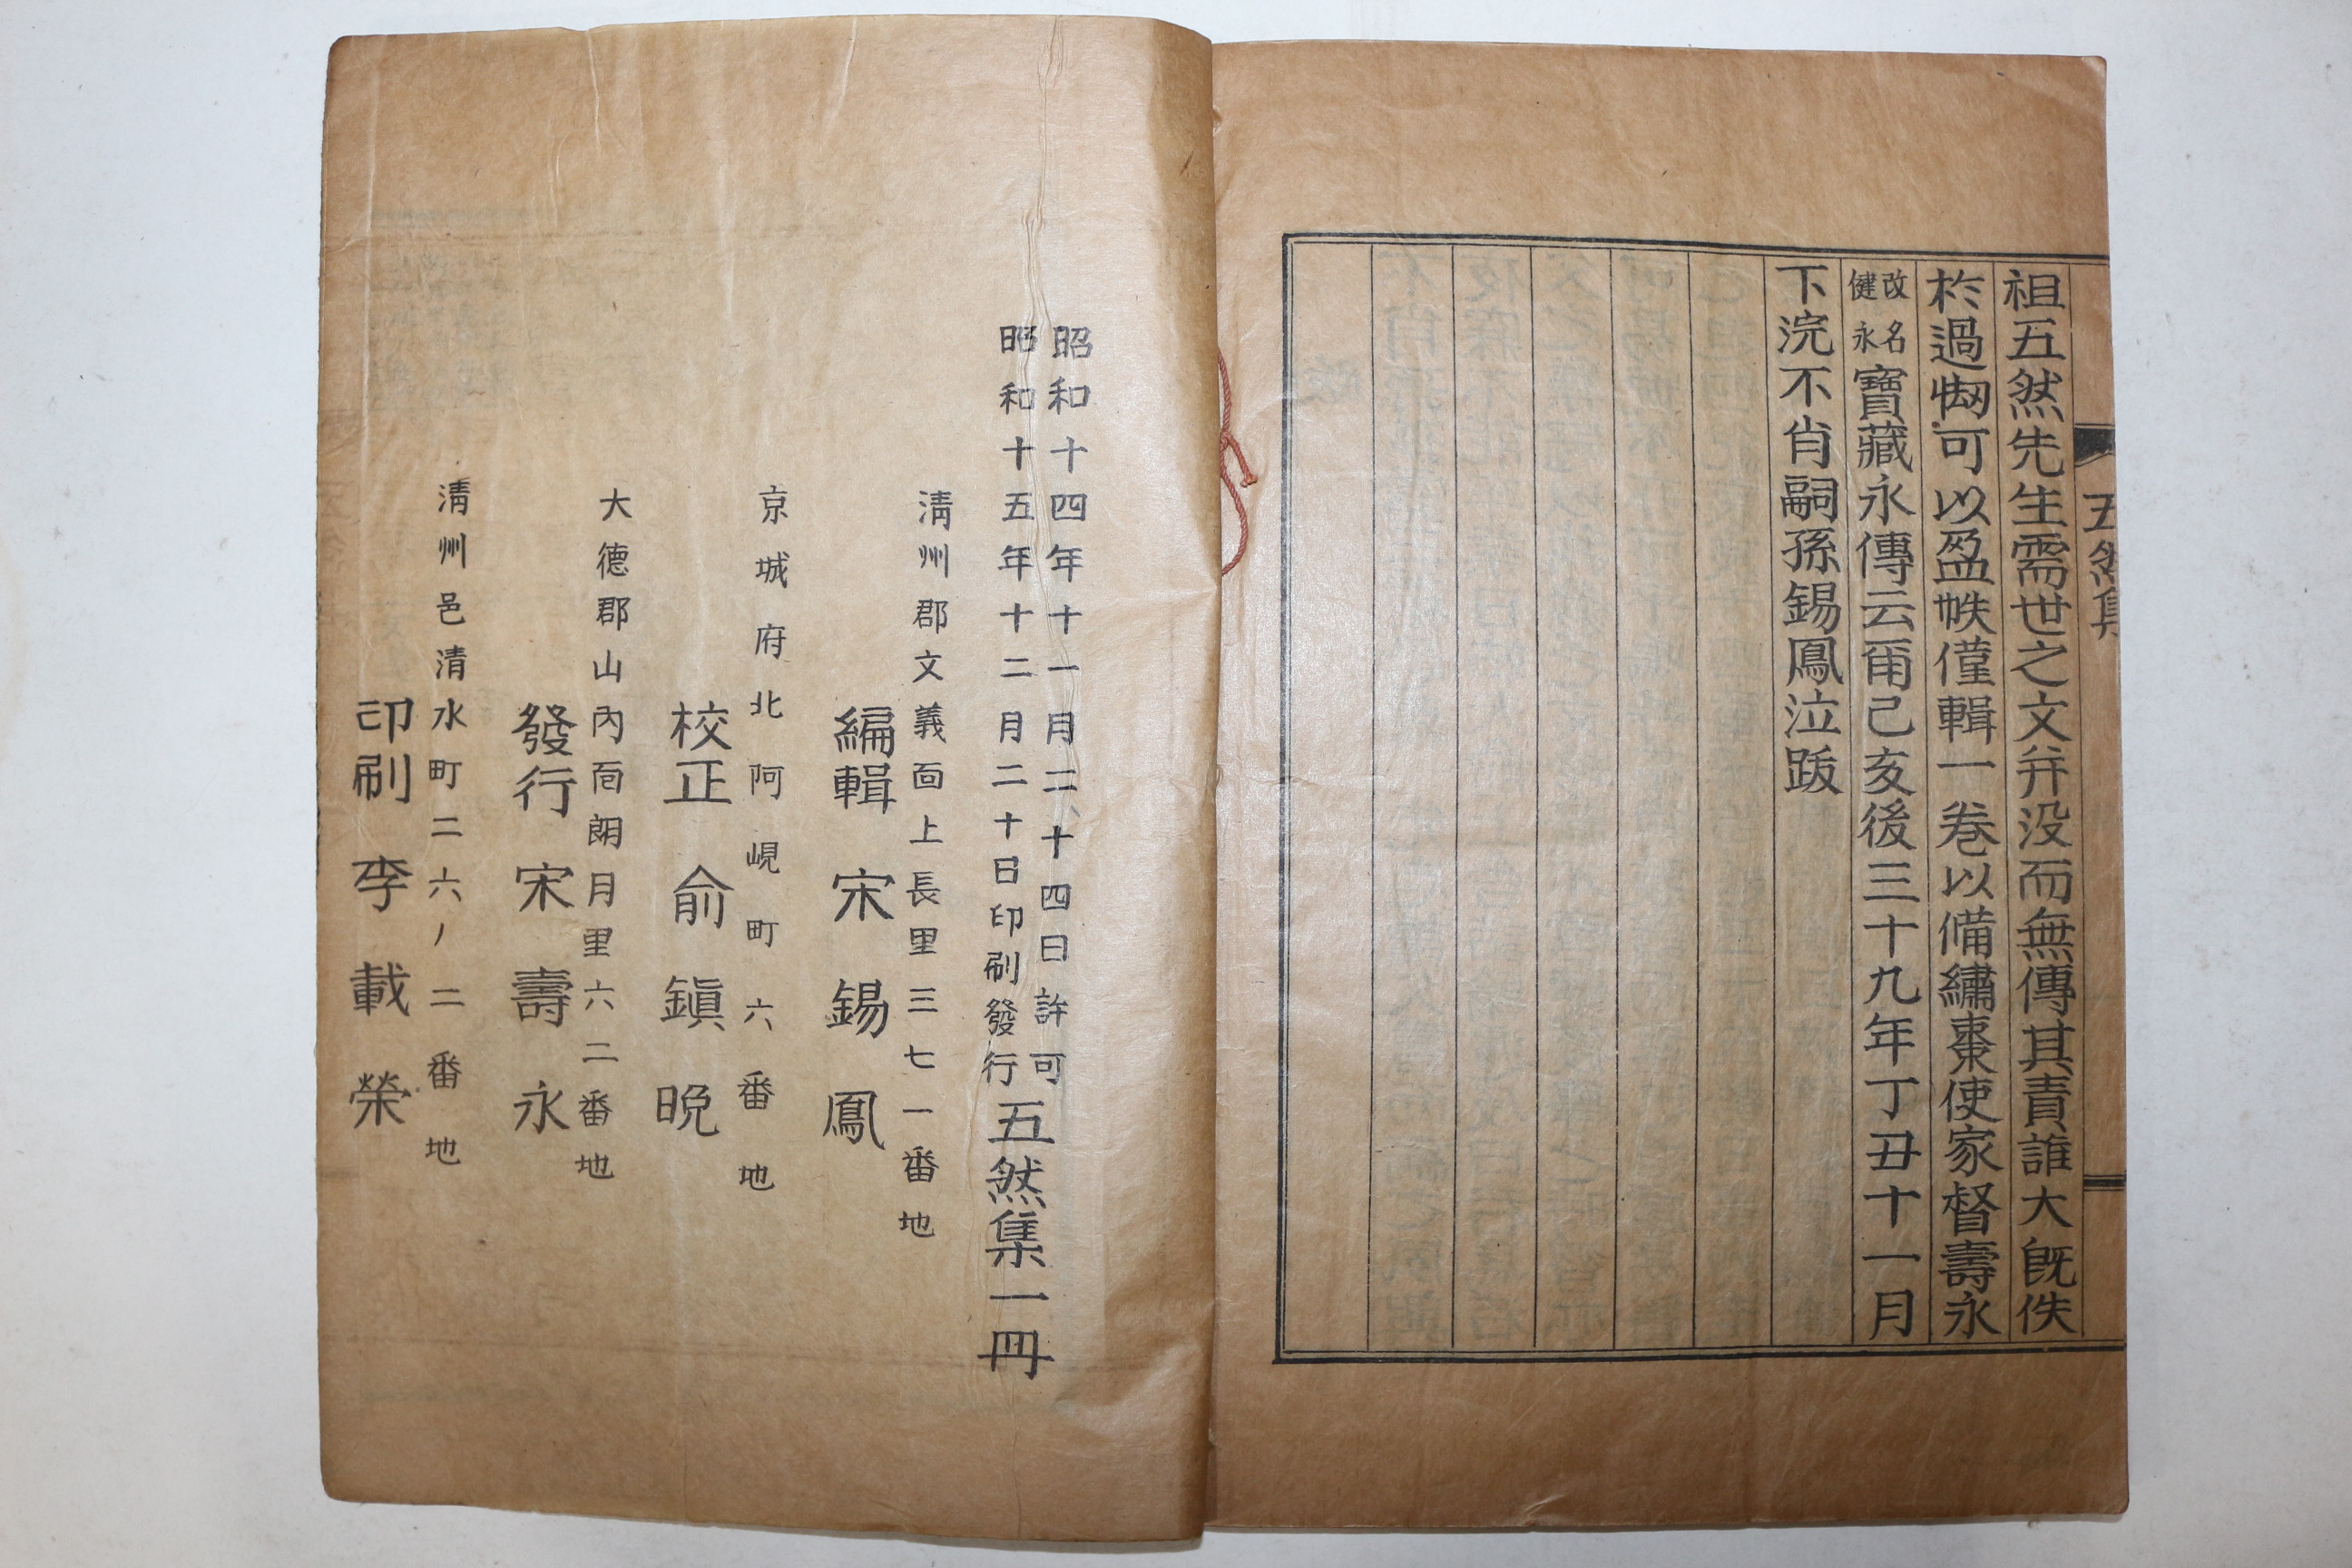 五然集
祖五然先生需世之文并没而無傳其責誰大旣佚
於過㥘可以盈帙僅輯一卷以備繡棗使家督壽永
改名健永寶藏永傳云爾己亥後三十九年丁丑十一月
下浣不肖嗣孫錫鳳泣跋
昭和十四年十一月二十四日許可
昭和十五年十二月二十日印刷發行
五然集一冊
淸州郡文義面上長里三七一番地
編輯 宋錫鳳
京城府北阿峴町六番地
校正 兪鎭晩
大德郡山內面朗月里六二番地
發行 宋壽永
淸州邑清水町二六ノ二番地
印刷 李載榮